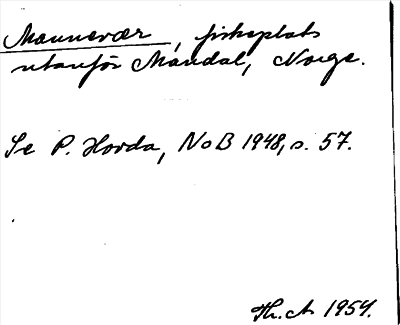 Mannevær, fiskeplats
utanför Mandal, Norge.
Se P. Hovda, NoB 1948, s. 57.
Th. A. 1954.